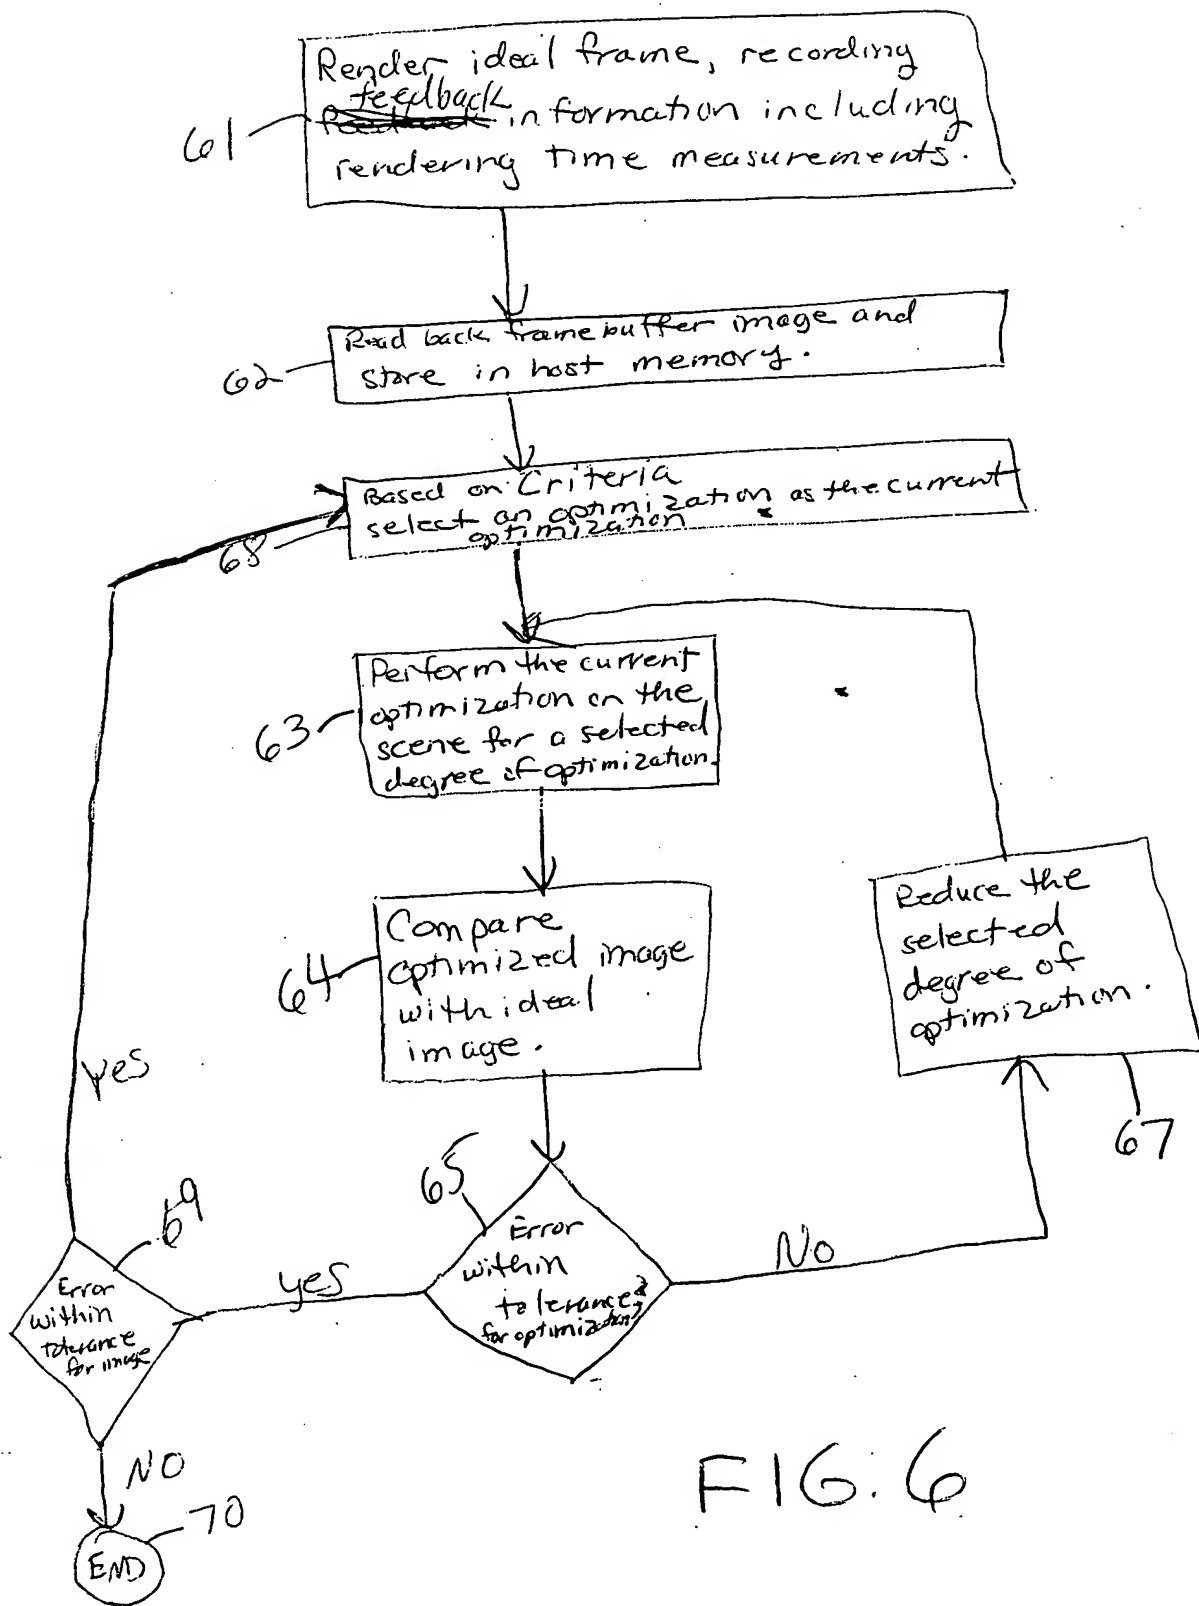 Render ideal frame, recording
feedback
information including
rendering time measurements.
61
Read back frame buffer image and
store in host memory.
62
Based on Criteria
select an optimization as the current
optimization
68
Perform the current
optimization on the
scene for a selected
degree of optimization.
63
Compare
optimized image
with ideal
image.
64
Reduce the
selected
degree of
optimization.
67
65
Error
within
tolerance
for optimization?
No
yes
69
Error
within
tolerance
for image
yes
NO
END
70
FIG. 6